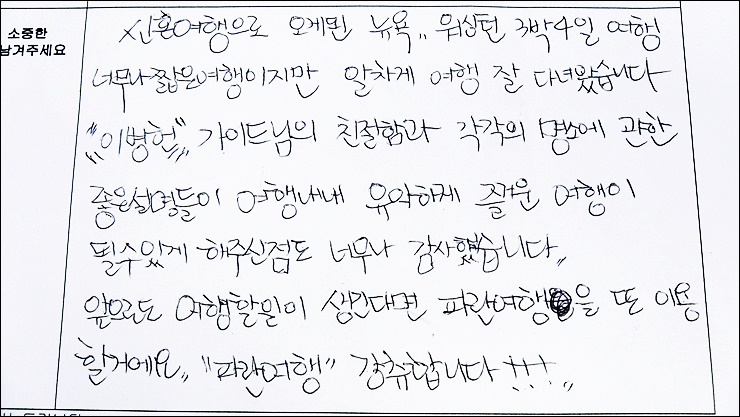 소중한
남겨주세요
신혼여행으로 오게된 뉴욕,, 워싱턴 3박4일 여행
너무나 짧은여행이지만 알차게 여행 잘 다녀왔습니다
"이병헌" 가이드님의 친절함과 각각의 명소에 관한
좋은설명들이 여행내내 유익하게 즐거운 여행이
될수있게 해주신점도 너무나 감사했습니다,,
앞으로도 여행할일이 생긴다면 파란여행을 또 이용
할거에요,, "파란여행" 강츄합니다!!!,,